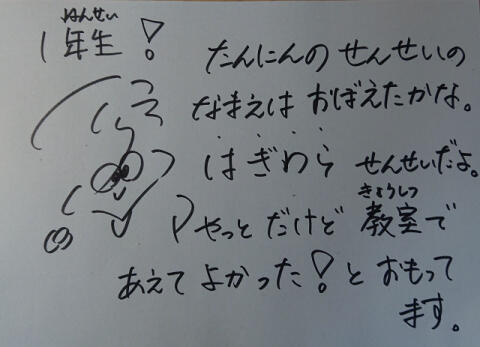 ねんせい
1年生!
たんにんの せんせいの
なまえは おぼえたかな。
はぎわら せんせいだよ。
きょうしつ
やっと だけど 教室で
あえて よかった!と おもって
ます。